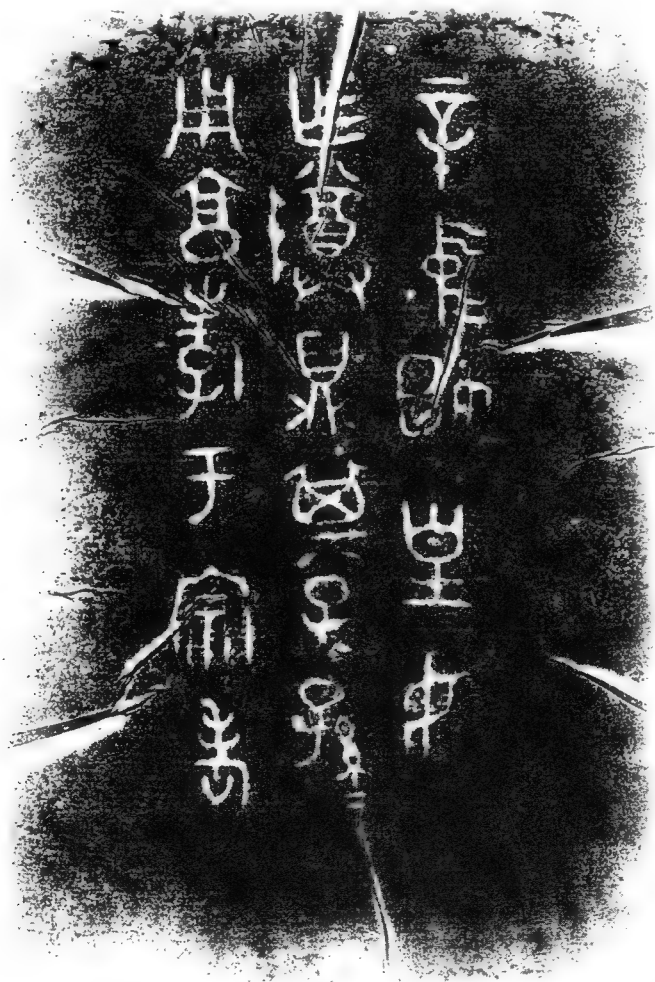 辛中姬皇母
乍尊鼎其子子孫孫
用享孝于宗老